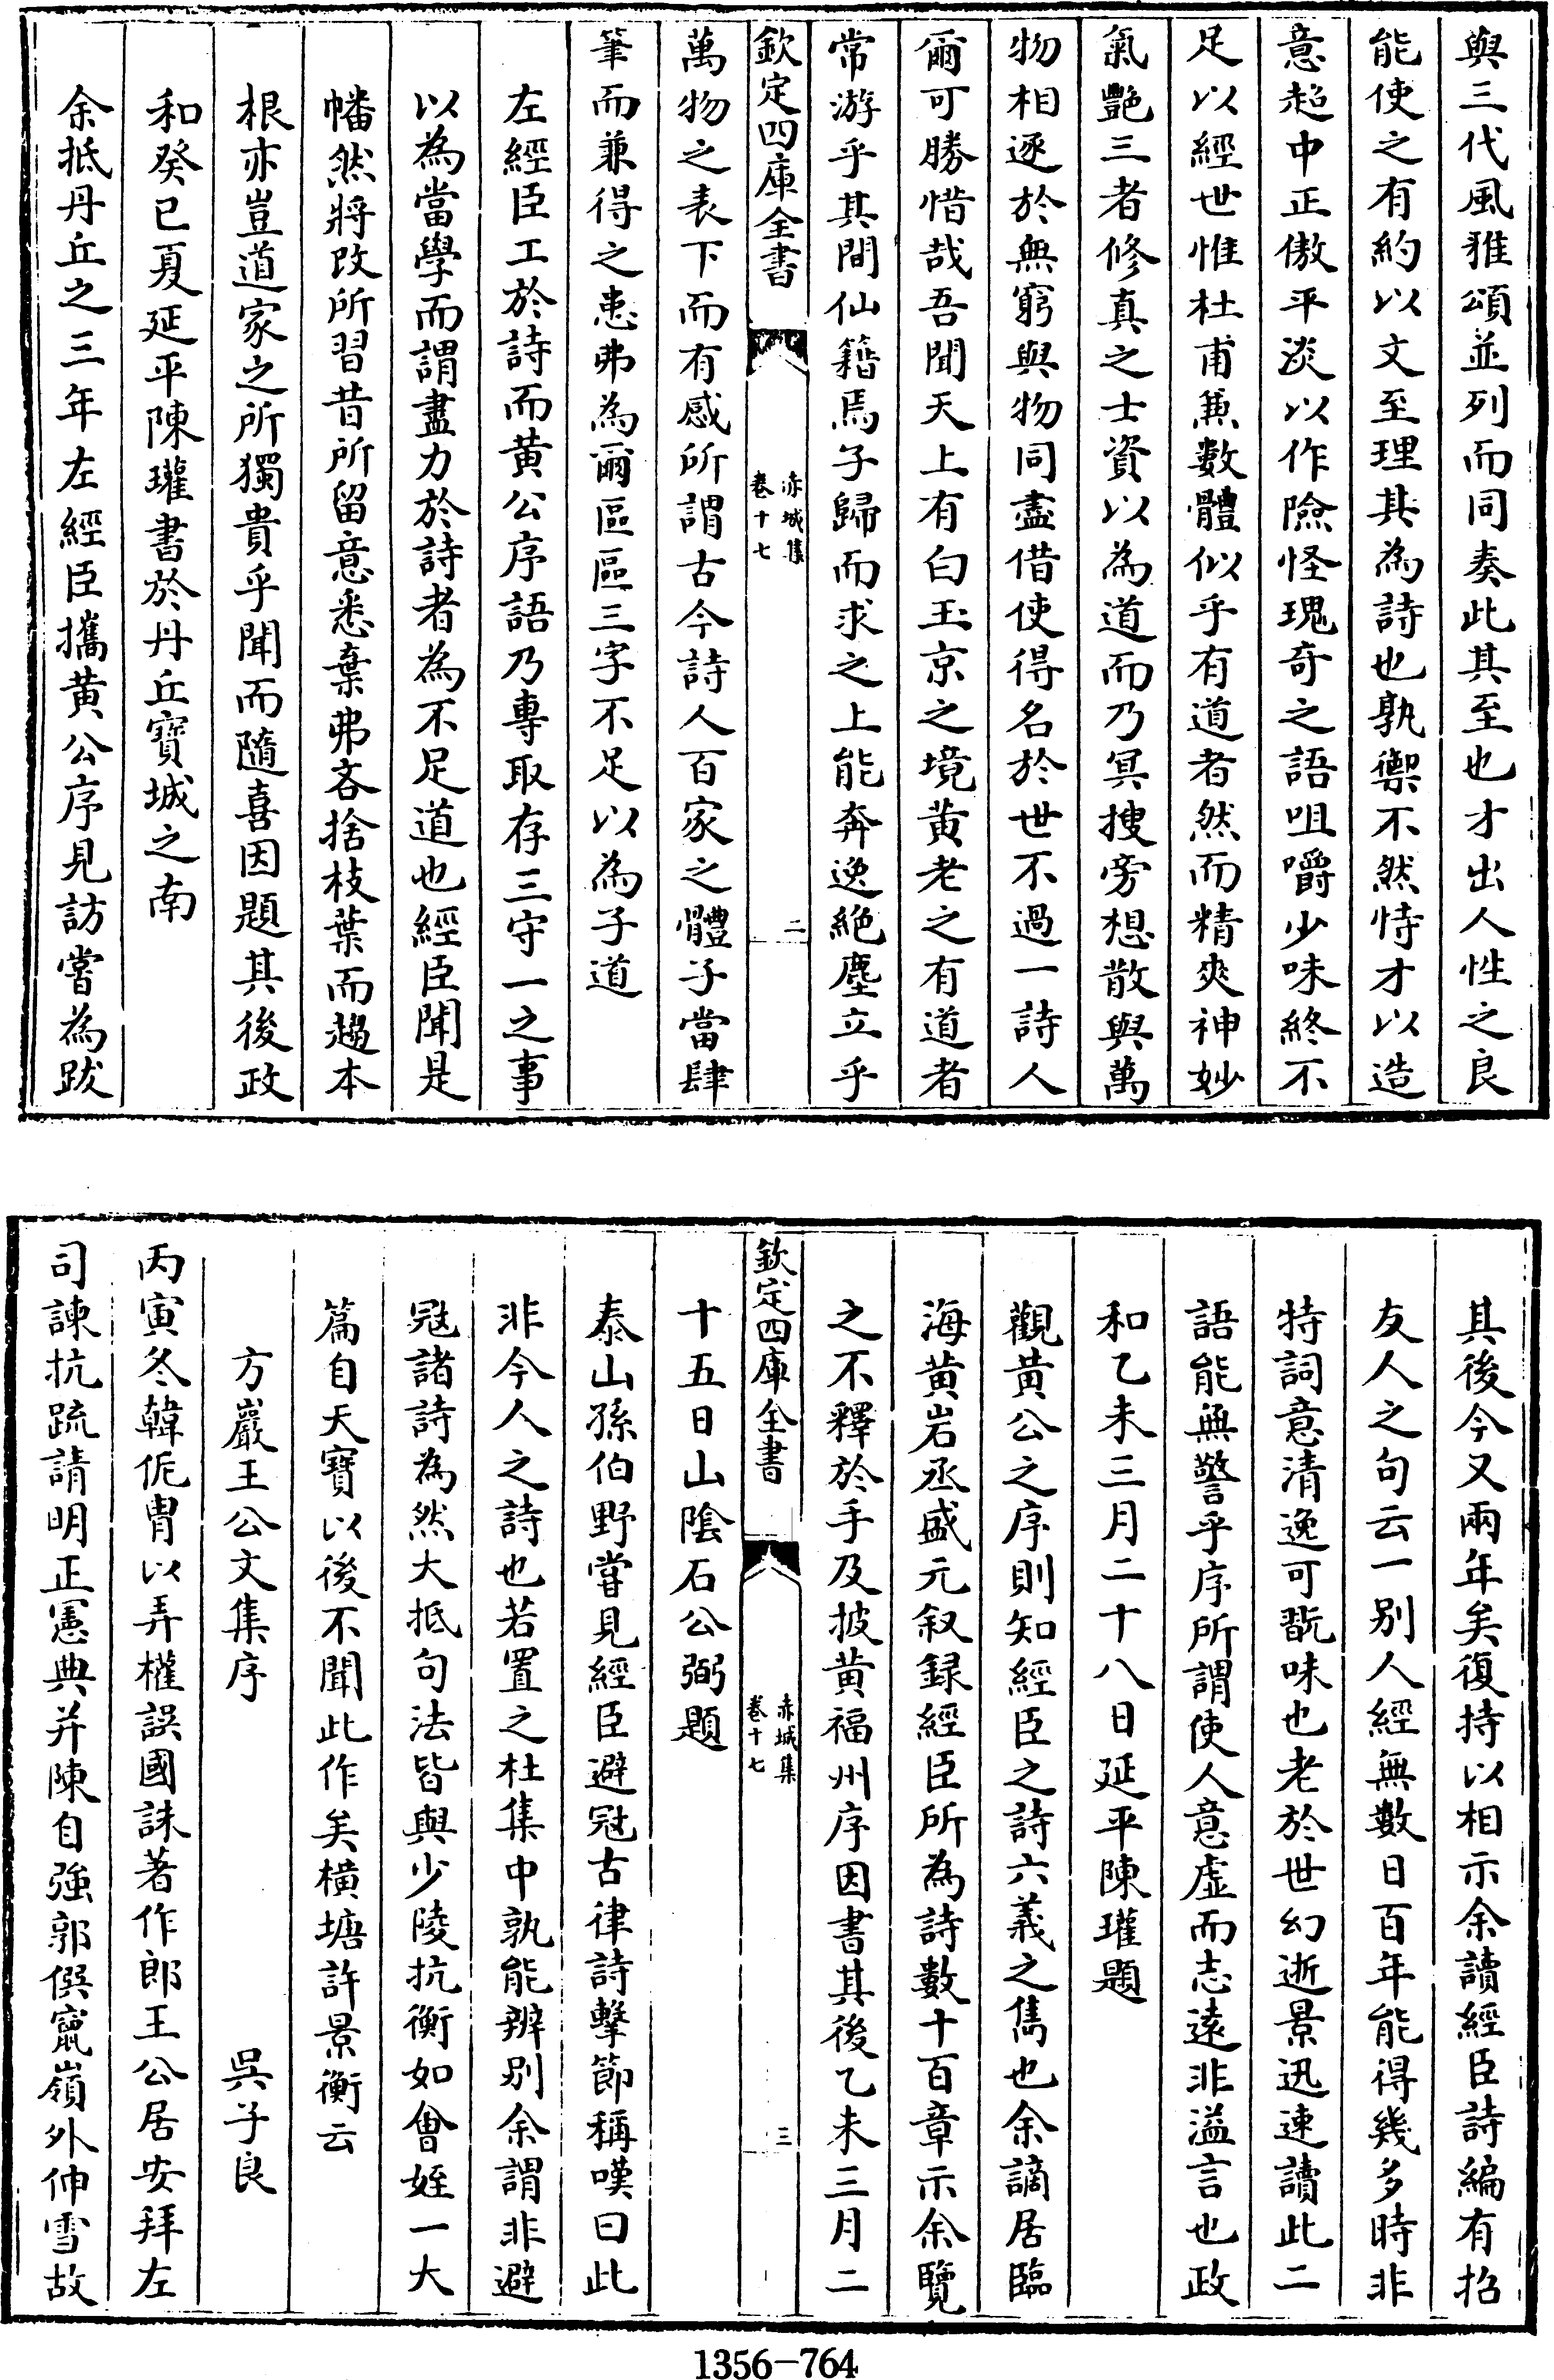 與三代風雅頌並列而同奏此其至也才出人性之良
能使之有約以文至理其為詩也孰禦不然恃才以造
意起中正傲平淡以作險怪瑰奇之語咀嚼少味終不
足以經世惟杜甫兼數體似乎有道者然而精爽神妙
氣艷三者修真之士資以為道而乃冥搜旁想散與萬
物相逐於無窮與物同盡借使得名於世不過一詩人
爾可勝惜哉吾聞天上有白玉京之境黃老之有道者
常游乎其間仙籍焉子歸而求之上能奔逸絕塵立乎
欽定四庫全書
赤城集
卷十七
二
萬物之表下而有感所謂古今詩人百家之體子當肆
筆而兼得之患弗為爾區區三字不足以為子道
左經臣工於詩而黃公序語乃專取存三守一之事
以為當學而謂盡力於詩者為不足道也經臣聞是
幡然將改所習昔所留意悉棄弗吝捨枝葉而趨本
根亦豈道家之所獨貴乎聞而隨喜因題其後政
和癸巳夏延平陳瓘書於丹丘寶城之南
余抵丹丘之三年左經臣攜黃公序見訪嘗為跋
其後今又兩年矣復持以相示余讀經臣詩編有招
友人之句云一別人經無數日百年能得幾多時非
特詞意清逸可翫味也老於世幻逝景迅速讀此二
語能無警乎序所謂使人意虛而志遠非溢言也政
和乙未三月二十八日延平陳瓘題
觀黃公之序則知經臣之詩六義之雋也余謫居臨
海黃岩丞盛元叙録經臣所為詩數十百章示余覽
之不釋於手及披黃福州序因書其後乙未三月二
欽定四庫全書
赤城集
卷十七
三
十五日山陰石公弼題
泰山孫伯野嘗見經臣避冠古律詩擊節稱嘆曰此
非今人之詩也若置之杜集中孰能辨別余謂非避
冠諸詩為然大抵句法皆與少陵抗衡如會姪一大
篇自天寶以後不聞此作矣橫塘許景衡云
方巖王公文集序　吳子良
丙寅冬韓侂冑以弄權誤國誅著作郎王公居安拜左
司諫抗疏請明正憲典并陳自強郭倪竄嶺外伸雪故
1356-764